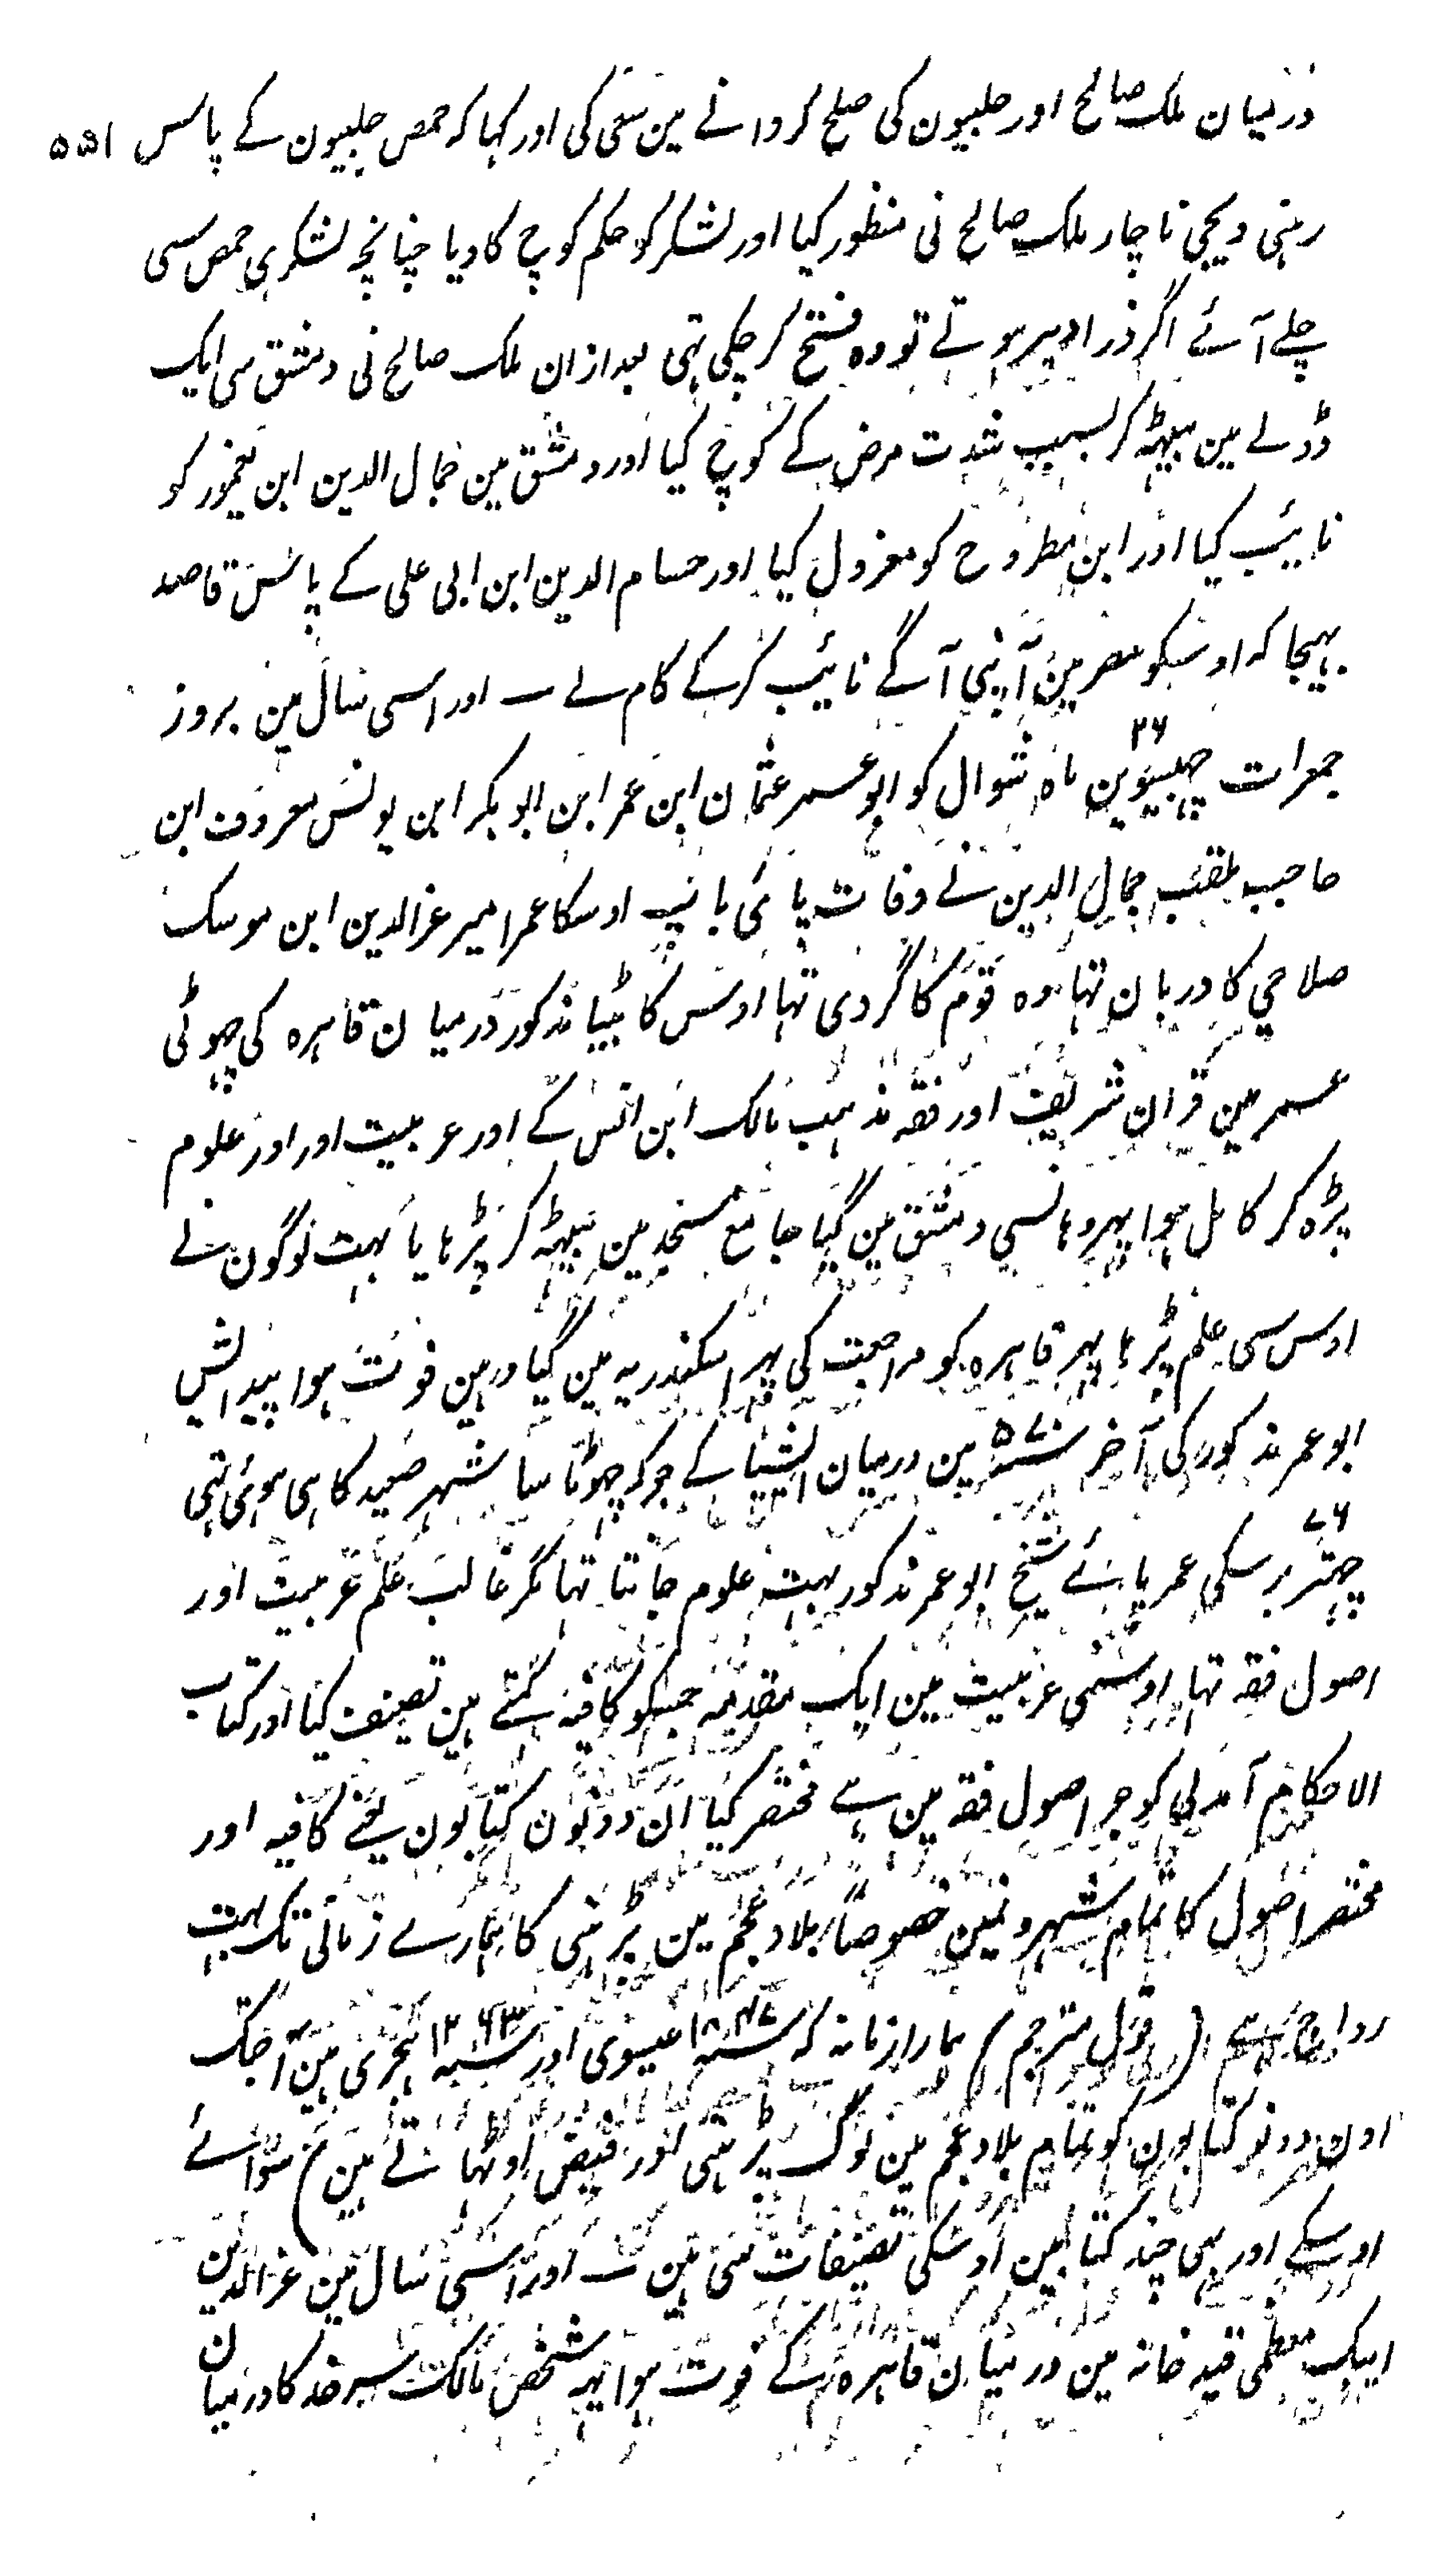 درمیان ملک صالح اور حلبیون کی صلح کروانے مین سعی کی اور کہا کہ حمص حلبیون کے پاس ۵۵۱
رہنی دیجی ناچار ملک صالح نی منظور کیا اور لشکر کو حکم کوچ کا دیا چنانچہ لشکری حمص سی
چلے آئے اگر ذرا دیر ہوتے تو وہ فتح کر چکی تہی بعد ازان ملک صالح نی دمشق سی ایک
ڈولے مین بیٹہہ کر بسبب شدت مرض کے کوچ کیا اور دمشق مین جمال الدین ابن یغمور کو
نائیب کیا اور ابن مطروح کو معزول کیا اور حسام الدین ابن ابی علی کے پاس قاصد
بہیجا کہ اوسکو مصر مین آپنی آگے نائیب کرکے کام لے ـــ اور اسی سال مین بروز
جمعرات چہبیسوین ۲۶ ماہ شوال کو ابو عمر عثمان ابن عمر ابن ابو بکر ابن یونس معروف ابن
حاجب بلقب جمال الدین نے وفات پائی باپ اوسکا عمر امیر عز الدین ابن موسک
صلاحی کا دربان تہا وہ قوم کا گردی تہا اوس کا بیٹا مذکور درمیان قاہرہ کی چہوٹی
عمر مین قران شریف اور فقہ مذہب مالک ابن انس کے اور عربیت اور اور علوم
پڑہ کر کامل ہوا پہر وہانسی دمشق مین گیا جامع مسجد مین بیٹہہ کر پڑہایا بہت لوگون نے
اوس سی علم پڑہا پہر قاہرہ کو مراجعت کی پہر اسکندریہ مین گیا وہین فوت ہوا پیدائش
ابو عمر مذکور کی آخر سنہ ۵۷۰ مین درمیان اشیا کے جو کہ چہوٹا سا شہر صعید کا ہی ہوئی تہی
چہتر ۷۶ برسکی عمر پائے شیخ ابو عمر مذکور بہت علوم جانتا تہا مگر غالب علم عربیت اور
اصول فقہ تہا اوسنی عربیت مین ایک مقدمہ جسکو کافیہ کہتے ہین تصنیف کیا اور کتاب
الاحکام آمدی کو جو اصول فقہ مین ہے مختصر کیا ان دونون کتابون یعنے کافیہ اور
مختصر اصول کا تمام شہرونمین خصوصاً بلاد عجم مین پڑہنی کا ہمارے زمانی تک بہت
رواج ہے (قول مترجم) ہمارا زمانہ کہ سنہ ۱۸۴۷ عیسوی اور سنہ ۱۲۶۳ ہجری ہین آجتک
اون دونو کتابون کو تمام بلاد عجم مین لوگ پڑہتی اور فیض اوٹہاتے ہین) سوائے
اوسکے اور بہی چند کتابین اوسکی تصنیفات سی ہین ـــ اور اسی سال مین عز الدین
ایبک معظمی قید خانہ مین درمیان قاہرہ کے فوت ہوا یہہ شخص مالک سرخد کا درمیان